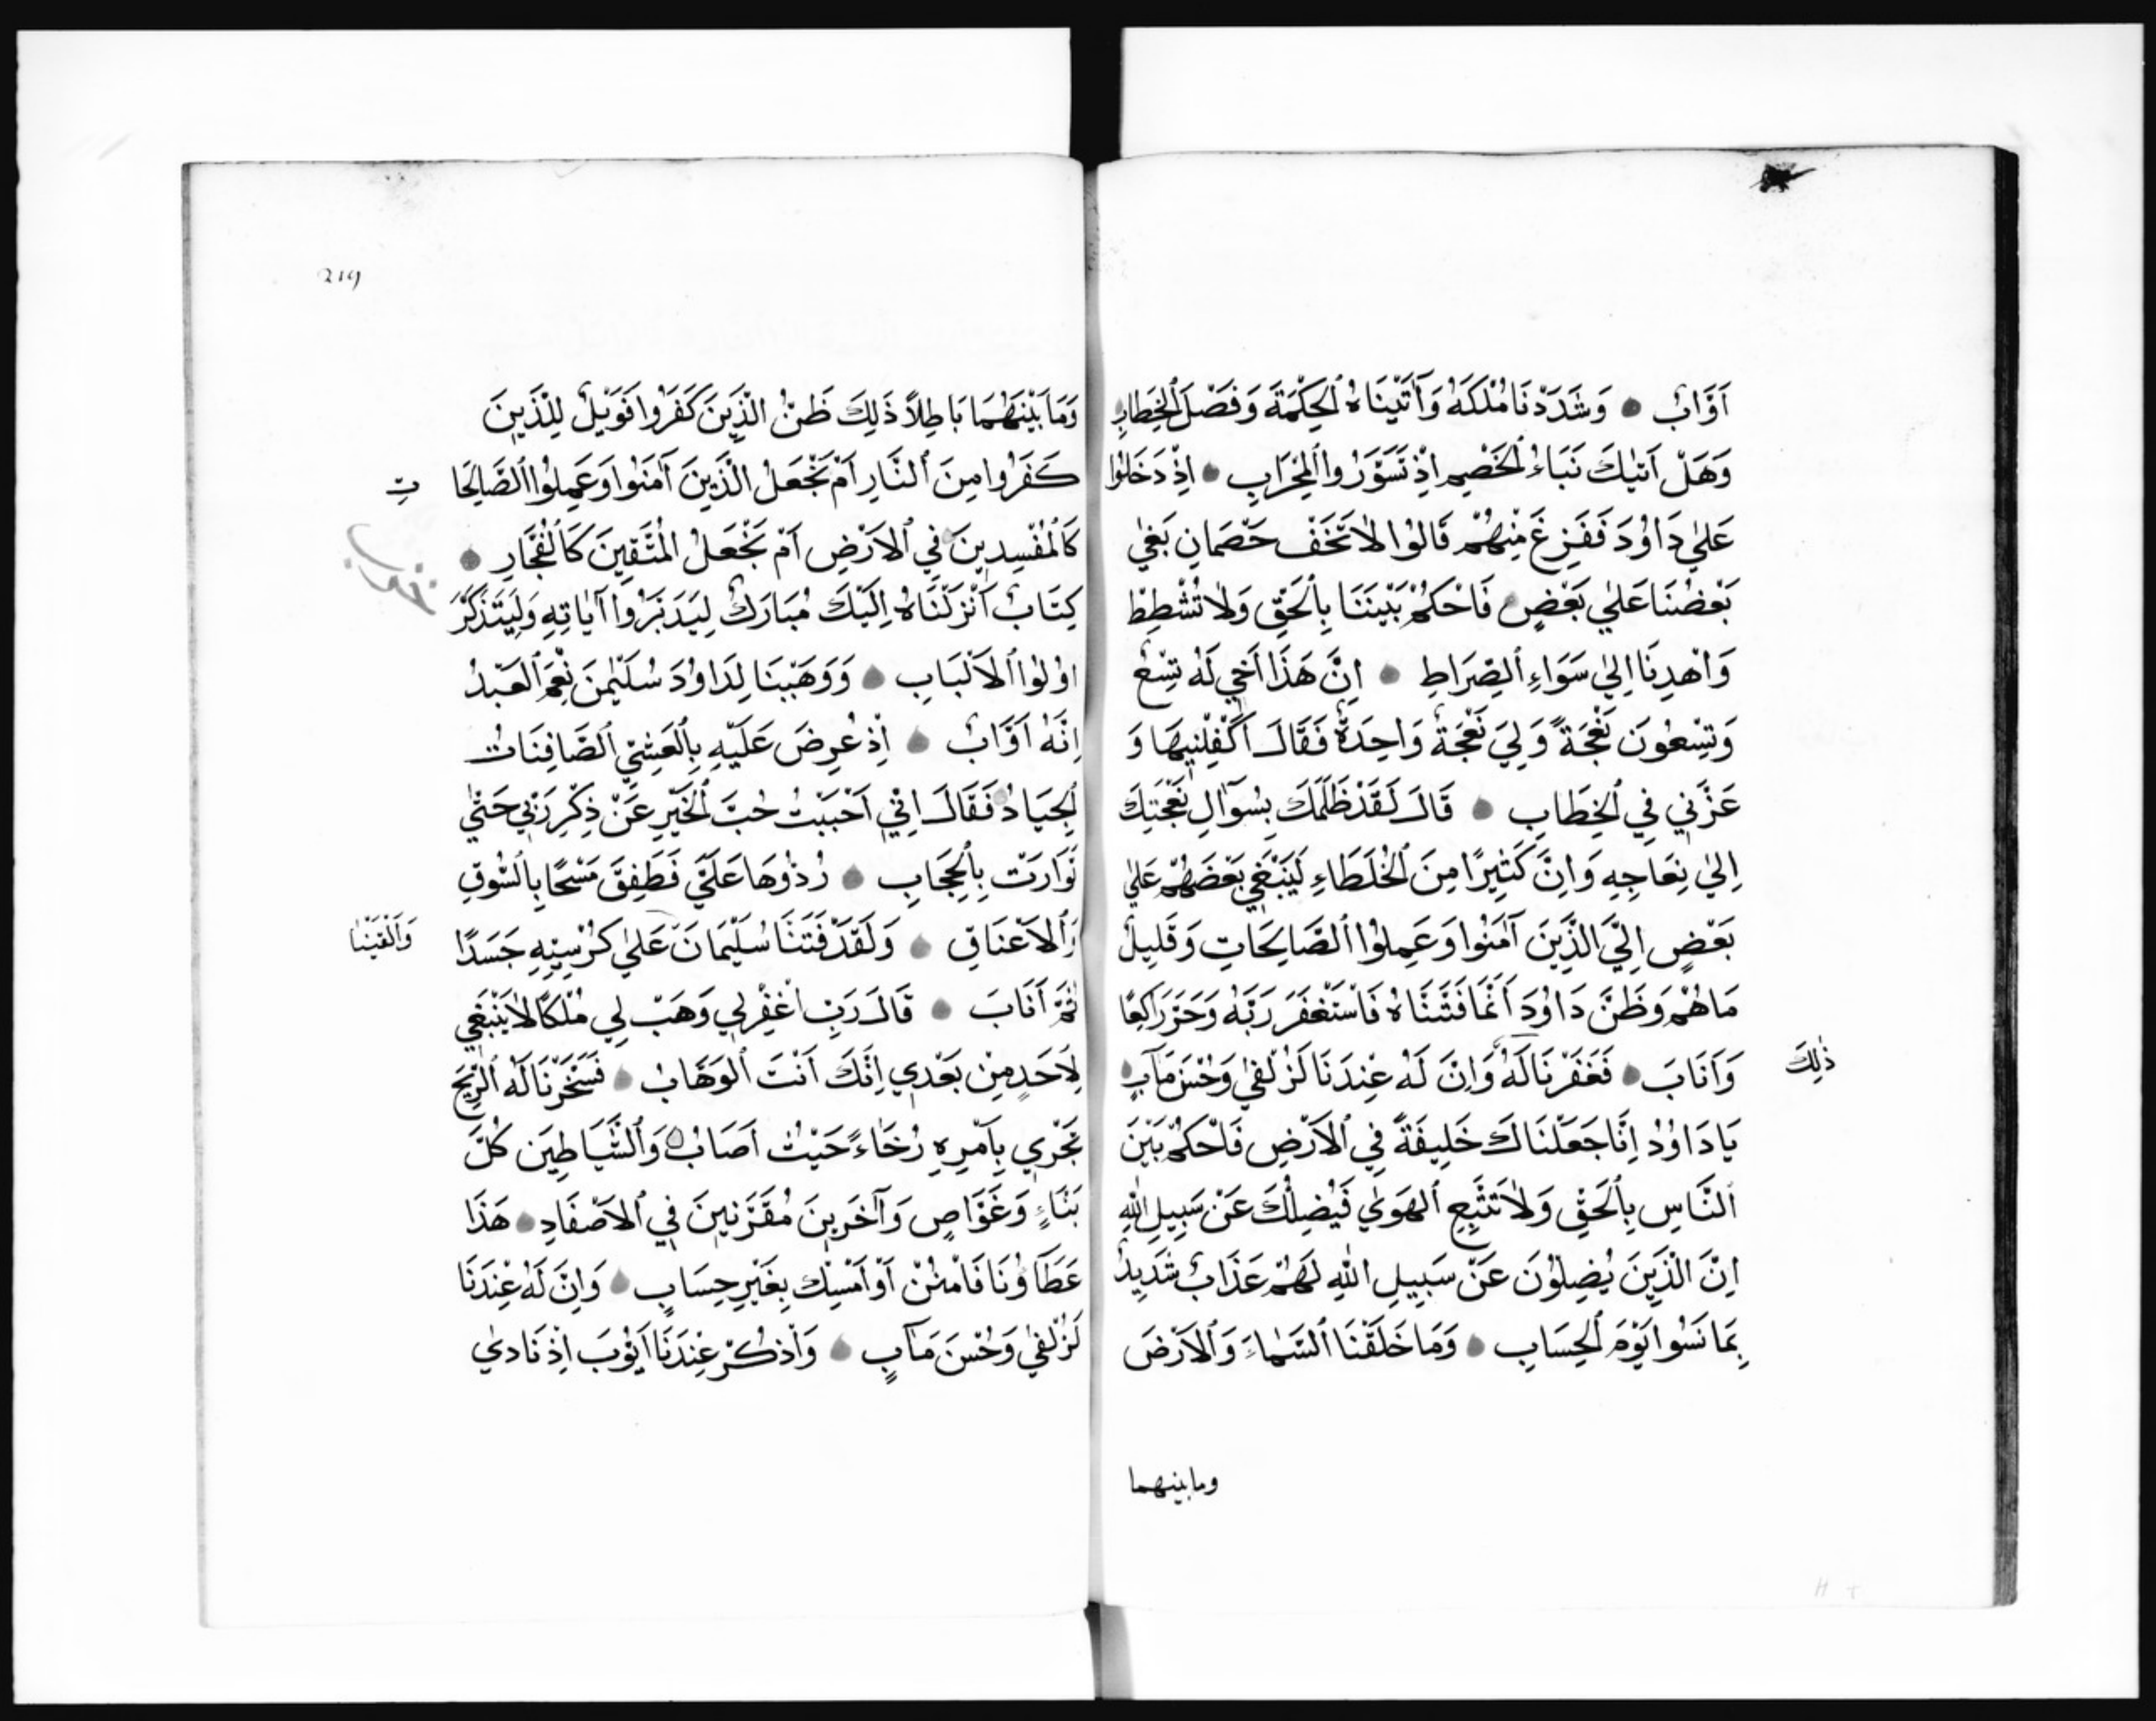 اَوَّابٌ ۝ وَشَدَدْنَا مُلْكَهُ وَآتَيْنَاهُ ٱلحِكْمَةَ وَفَصْلَ ٱلخِطَابِ
وَهَلْ اَتٰىكَ نَبَاءُ ٱلخَصْمِ اِذْ تَسَوَّرُوا ٱلمِحْرَابِ ۝ اِذْ دَخَلُوا
عَلٰي دَاوُدَ فَفَزِعَ مِنْهُمْ قَالُوا لاٰ تَخَفْ خَصْمَانِ بَغٰي
بَعْضُنَا عَلٰي بَعْضٍ فَاحْكُمْ بَيْنَنَا بِٱلحَقِّ وَلاٰ تُشْطِطْ
وَاهْدِنَا اِلٰي سَوَاءِ ٱلصِّرَاطِ ۝ اِنَّ هَذَا اَخِي لَهُ تِسْعٌ
وَتِسْعُونَ نَعْجَةً وَلِيَ نَعْجَةٌ وَاحِدَةٌ فَقَالَ اَكْفِلْنِيهَا وَ
عَزَّنِي فِي ٱلخِطَابِ ۝ قَالَ لَقَدْ ظَلَمَكَ بِسُوَآلِ نَعْجَتِكَ
اِلٰي نِعَاجِهِ وَاِنَّ كَثِيرًا مِنَ ٱلخُلَطَاءِ لَيَبْغِي بَعْضَهُمْ عَلٰي
بَعْضٍ اِلَّيَ الَّذِينَ آمَنُوا وَعَمِلُوا ٱلصَّالِحَاتِ وَقَلِيلٌ
مَا هُمْ وَظَنَّ دَاوُدَ اَنَّمَا فَتَنَّاهُ فَاسْتَغْفَرَ رَبَّهُ وَخَرَّ رَاكِعًا
وَاَنَابَ ۝ فَغَفَرْنَا لَهُ وَاِنَّ لَهُ عِنْدَنَا لَزُلْفٰي وَحُسْنَ مَآبٍ
ذٰلِكَ
يَا دَاوُدُ اِنَّا جَعَلْنَاكَ خَلِيفَةً فِي ٱلاَرْضِ فَاحْكُمْ بَيْنَ
ٱلنَّاسِ بِٱلحَقِّ وَلاٰ تَتَّبِعِ ٱلهَوٰي فَيُضِلَّكَ عَنْ سَبِيلِ اللّٰهِ
اِنَّ الَّذِينَ يُضِلُّونَ عَنْ سَبِيلِ اللّٰهِ لَهُمْ عَذَابٌ شَدِيدٌ
بِمَا نَسُوا يَوْمَ ٱلحِسَابِ ۝ وَمَا خَلَقْنَا ٱلسَّمَاءَ وَٱلاَرْضَ
وما بينهما
219
وَمَا بَيْنَهُمَا بَاطِلاً ذَلِكَ ظَنُّ الَّذِينَ كَفَرُوا فَوَيْلٌ لِلَّذِينَ
كَفَرُوا مِنَ ٱلنَّارِ اَمْ نَجْعَلُ الَّذِينَ آمَنُوا وَعَمِلُوا ٱلصَّالِحَا
تِ
كَالْمُفْسِدِينَ فِي ٱلاَرْضِ اَمْ نَجْعَلُ الْمُتَّقِينَ كَالْفُجَّارِ ۝
كِتَابٌ اَنْزَلْنَاهُ اِلَيْكَ مُبَارَكٌ لِيَدَبَّرُوا آيَاتِهِ وَلِيَتَذَكَّرَ
اوُلُوا ٱلاَلْبَابِ ۝ وَوَهَبْنَا لِدَاوُدَ سُلَيْمٰنَ نِعْمَ ٱلعَبْدُ
اِنَّهُ اَوَّابٌ ۝ اِذْ عُرِضَ عَلَيْهِ بِٱلعَشِيِّ ٱلصَّافِنَاتُ
ٱلجِيَادُ فَقَالَ اِنِّي اَحْبَبْتُ حُبَّ ٱلخَيْرِ عَنْ ذِكْرِ رَبِّي حَتّٰي
تَوَارَتْ بِٱلحِجَابِ ۝ رُدُّوهَا عَلَيَّ فَطَفِقَ مَسْحًا بِالسُّوقِ
وَٱلاَعْنَاقِ ۝ وَلَقَدْ فَتَنَّا سُلَيْمَانَ عَلٰي كُرْسِيِّهِ جَسَدًا
وَاَلْقَيْنٰا
ثُمَّ اَنَابَ ۝ قَالَ رَبِّ اغْفِرْ لِي وَهَبْ لِي مُلْكًا لاٰ يَنْبَغِي
لِاَحَدٍ مِنْ بَعْدِي اِنَّكَ اَنْتَ ٱلوَهَّابُ ۝ فَسَخَّرْنَا لَهُ ٱلرِّيحَ
تَجْرِي بِاَمْرِهِ رُخَاءً حَيْثُ اَصَابَ ۝ وَٱلشَّيَاطِينَ كُلَّ
بَنَّاءٍ وَغَوَّاصٍ وَآخَرِينَ مُقَرَّنِينَ فِي ٱلاَصْفَادِ ۝ هَذَا
عَطَاَوُنَا فَامْنُنْ اَوْ اَمْسِكْ بِغَيْرِ حِسَابٍ ۝ وَاِنَّ لَهُ عِنْدَنَا
لَزُلْفٰي وَحُسْنَ مَآبٍ ۝ وَاذْكُرْ عِنْدَنَا اَيُّوبَ اِذْ نَادٰي